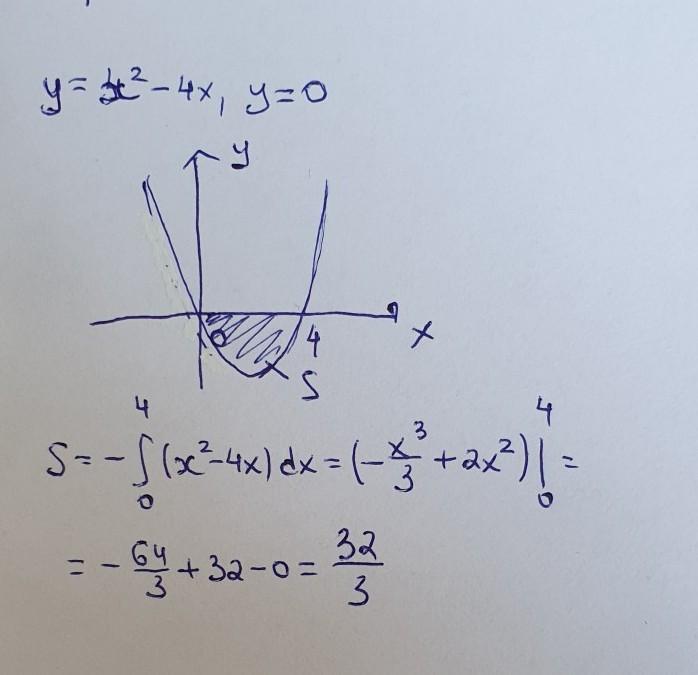 y = x² - 4x, y = 0
y
0
4
x
S
S = -∫₀⁴ (x² - 4x) dx = (-x³/3 + 2x²) |₀⁴ =
= -64/3 + 32 - 0 = 32/3